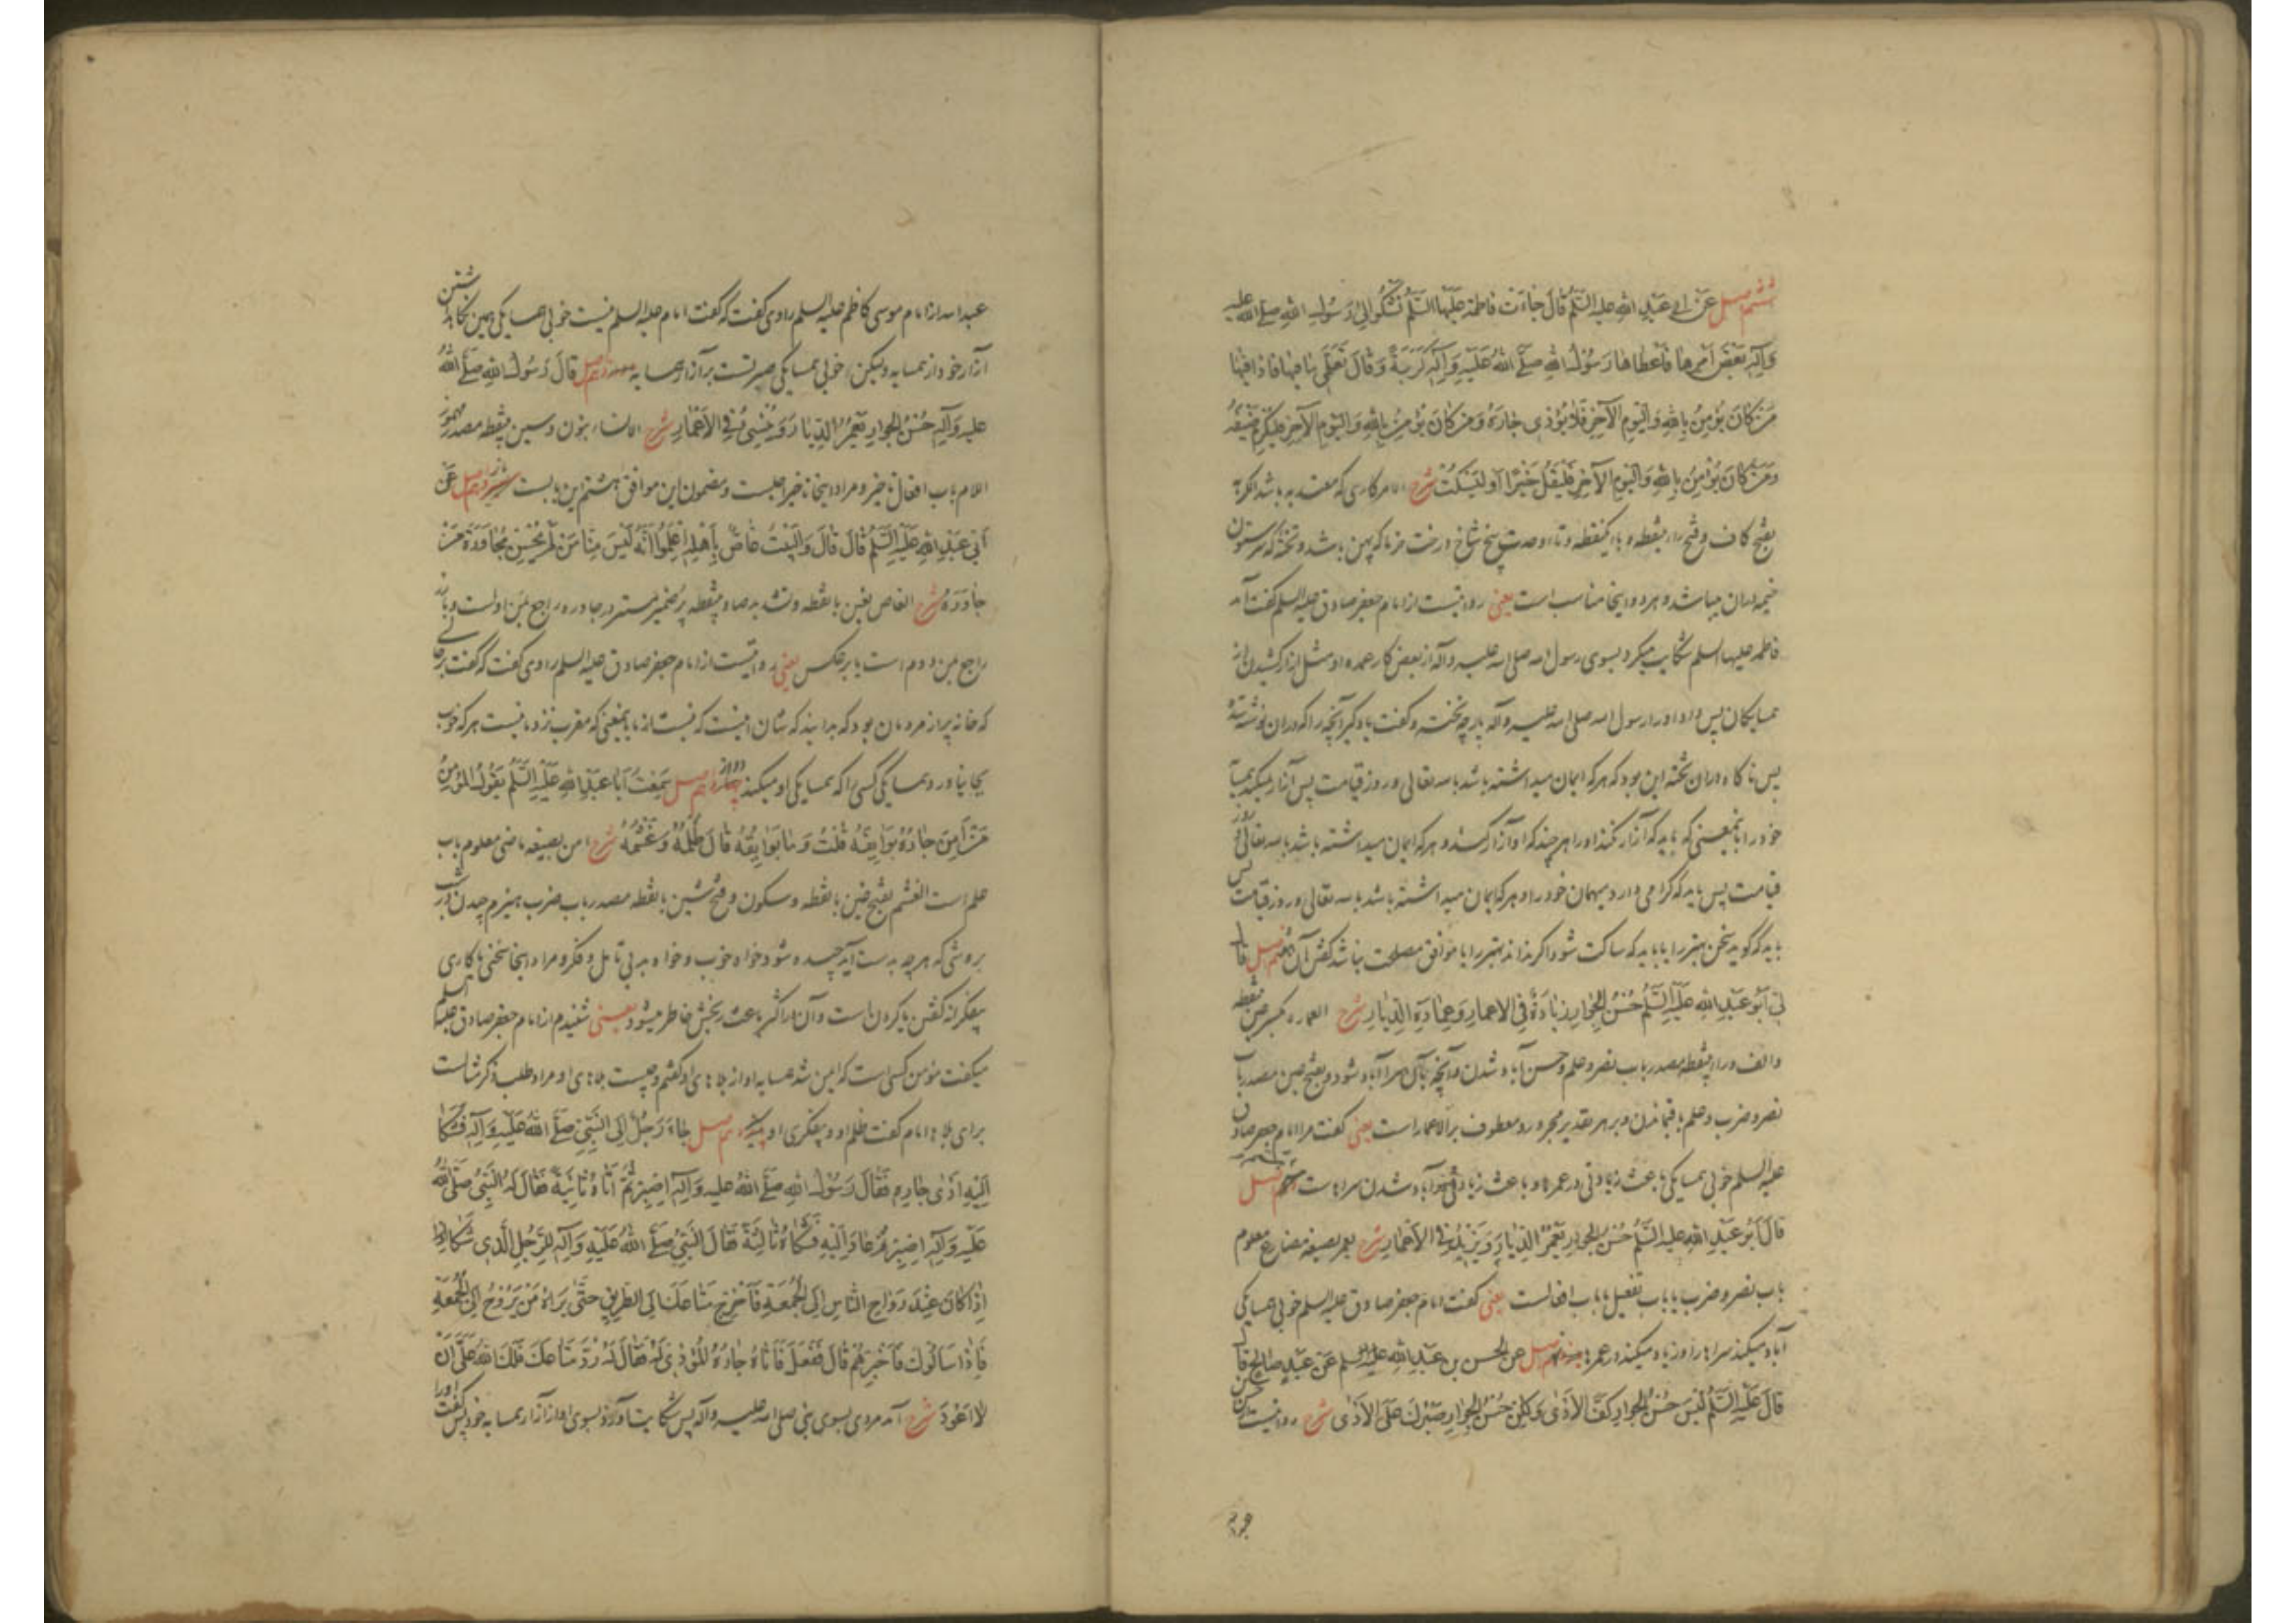 ششم اصل عَنْ اَبِي عَبْدِ اللّٰهِ عليه السَّلٰمُ قَالَ جَاءَتْ فَاطِمَةُ عَلَيْهَا السَّلٰمُ تَشْكُو اِلٰى رَسُولِ اللّٰهِ صَلَّى اللّٰه عليه
وَآلِهِ بَعْضَ اَمْرِهَا فَاَعْطَاهَا رَسُوْلُ اللّٰهِ صَلَّى اللّٰهُ عَلَيْهِ وَآلِهِ كَرَبَةً وَقَالَ تَعَلَّمِي مَا فِيهَا فَاِذَا فِيهَا
مَنْ كَانَ يُؤْمِنُ بِاللّٰهِ وَالْيَوْمِ الْآخِرِ فَلَا يُؤْذِي جَارَهُ وَمَنْ كَانَ يُؤْمِنُ بِاللّٰهِ وَالْيَوْمِ الْآخِرِ فَلْيُكْرِمْ ضَيْفَهُ
وَمَنْ كَانَ يُؤْمِنُ بِاللّٰهِ وَالْيَوْمِ الْآخِرِ فَلْيَقُلْ خَيْرًا اَوْ لِيَسْكُتْ شرح الامر کاری که معتد به باشد الکربة
بفتح کاف و فتح راء بینقطه و باء یکنقطه و تاء وحدت بیخ شاخ درخت خرما که پهن باشد و تخته که سر ستون
خیمه دران میباشد و هر دو اینجا مناسب است یعنی روایتست از امام جعفر صادق علیه السلم گفت آمد
فاطمه علیها السلم شکایت میکرد بسوی رسول الله صلی الله علیه وآله از بعض کار عمده او مثل آزار کشیدن از
همسایگان پس داد او را رسول الله صلی الله علیه وآله پارچه تخته و گفت یاد گیر آنچه را که دران نوشته شده
پس ناگاه دران تخته این بود که هر که ایمان میداشته باشد بالله تعالی و روز قیامت پس آزار نمیکند همسایه
خود را باینمعنی که باید که آزار نکند او را هر چند که او آزار کند و هر که ایمان میداشته باشد بالله تعالی و روز
قیامت پس باید که گرامی دارد میهمان خود را و هر که ایمان میداشته باشد بالله تعالی و روز قیامت پس
باید که گوید سخن بهتر را یا باید که ساکت شود اگر نداند بهتر را یا موافق مصلحت نباشد گفتن آن هفتم اصل قال
لِي اَبُو عَبْدِ اللّٰهِ عَلَيْهِ السَّلٰمُ حُسْنُ الْجِوَارِ زِيَادَةٌ فِي الاعمارِ وَعِمَارَةِ الدِّيَارِ شرح العماره بکسر عین بینقطه
والف وراء بینقطه مصدر باب نصر وعلم وحسن آباد شدن وآنچه بآن سرا آباد شود و بفتح عین مصدر باب
نصر وضرب وعلم باقیماندن وبر هر تقدیر مجرور و معطوف بر الاعمار است یعنی گفت مرا امام جعفر صادق
علیه السلم خوبی همسایگی باعث زیادتی در عمرها و باعث زیادتی در آباد شدن سراهاست هشتم اصل
قَالَ اَبُو عَبْدِ اللّٰهِ عليه السَّلٰمُ حُسْنُ الْجِوَارِ يَعْمُرُ الدِّيَارَ وَيَزِيْدُ فِي الْاَعْمَارِ شرح یعمر بصیغه مضارع معلوم
باب نصر وضرب یا باب تفعیل یا باب افعالست یعنی گفت امام جعفر صادق علیه السلم خوبی همسایگی
آباد میکند سراها را و زیاد میکند در عمرها نهم اصل عن الْحسن بن عَبْدِ اللّٰهِ عَنْ عَبْدٍ صَالِحٍ قال
قَالَ عَلَيْهِ السَّلٰمُ لَيْسَ حُسْنُ الْجِوَارِ كَفَّ الْاَذٰى وَلٰكِنْ حُسْنُ الْجِوَارِ صَبْرُكَ عَلَى الْاَذٰى شرح روایتست از حسن بن
عبد الله از امام موسی کاظم علیه السلم راوی گفت که گفت امام علیه السلم نیست خوبی همسایگی همین نگاه داشتن
آزار خود از همسایه ولیکن خوبی همسایگی صبر تست بر آزار همسایه دهم اصل قَالَ رَسُولُ اللّٰهِ صَلَّى اللّٰهُ
عليه وَآلِهِ حُسْنُ الْجِوَارِ يَعْمُرُ الدِّيَارَ وَيُنْسِئُ فِي الْاَعْمَارِ شرح الانساء بنون وسین بینقطه مصدر مهموز
اللام باب افعال تاخیر و مراد اینجا تاخیر اجلست و مضمون این موافق هشتم این بابست یازدهم اصل عَنْ
اَبِي عَبْدِ اللّٰهِ عَلَيْهِ السَّلٰمُ قَالَ قَالَ وَالْبَيْتُ غَاصٌّ بِاَهْلِهِ اعْلَمُوْا اَنَّهُ لَيْسَ مِنَّا مَنْ لَمْ يُحْسِنْ مُجَاوَرَةَ مَنْ
جَاوَرَهُ شرح الغاص بغین با نقطه و تشدید صاد بینقطه پر ضمیر مستتر در جاوره راجع بمن اولست و بارز
راجع بمن دوم است یا برعکس یعنی روایتست از امام جعفر صادق علیه السلم راوی گفت که گفت بر حالی
که خانه پر از مردمان بود که بدانید که شأن اینست که نیست از ما باینمعنی که مقرب نزد ما نیست هر که خوب
بجا نیاورد همسایگی کسی را که همسایگی او میکند دوازدهم اصل سَمِعْتُ اَبَا عَبْدِ اللّٰهِ عَلَيْهِ السَّلٰمُ يَقُولُ الْمُؤْمِنُ
مَنْ آمَنَ جَارُهُ بَوَائِقَهُ قُلْتُ وَمَا بَوَائِقُهُ قَالَ ظُلْمُهُ وَغَشْمُهُ شرح امن بصیغه ماضی معلوم باب
علم است الغشم بفتح غین با نقطه وسکون وفتح شین با نقطه مصدر باب ضرب هیزم چیدن در شب
بروشی که هر چه بدست آید چیده شود خواه خوب وخواه بد بی تامل وفکر و مراد اینجا سخنی یا کاری
بیفکرانه گفتن یا کردن است وآن در اکثر باعث رنجش خاطر میشود یعنی شنیدم از امام جعفر صادق علیه السلم
میگفت مؤمن کسی است که ایمن شد همسایه او از بلاهای او گفتم و چیست بلاهای او مراد طلب ذکر مثالست
برای بلاها امام گفت ظلم او و بیفکری او سیزدهم اصل جَاءَ رَجُلٌ اِلَى النَّبِيِّ صَلَّى اللّٰهُ عَلَيْهِ وَآلِهِ فَشَكَا
اِلَيْهِ اَذٰى جَارِهِ فَقَالَ رَسُولُ اللّٰهِ صَلَّى اللّٰهُ عليه وَآلِهِ اصْبِرْ ثُمَّ اَتَاهُ ثَانِيَةً فَقَالَ لَهُ النَّبِيُّ صَلَّى اللّٰهُ
عَلَيْهِ وَآلِهِ اصْبِرْ ثُمَّ عَادَ اِلَيْهِ فَشَكَاهُ ثَالِثَةً فَقَالَ النَّبِيُّ صَلَّى اللّٰهُ عَلَيْهِ وَآلِهِ لِلرَّجُلِ الَّذِي شَكَا
اِذَا كَانَ عِنْدَ رَوَاحِ النَّاسِ اِلَى الْجُمُعَةِ فَاَخْرِجْ مَتَاعَكَ اِلَى الطَّرِيقِ حَتّٰى يَرَاهُ مَنْ يَرُوْحُ اِلَى الْجُمُعَةِ
فَاِذَا سَاَلُوكَ فَاَخْبِرْهُمْ قَالَ فَفَعَلَ فَاَتَاهُ جَارُهُ الْمُؤْذِي لَهُ فَقَالَ لَهُ رُدَّ مَتَاعَكَ فَلَكَ اللّٰهُ عَلَيَّ اَنْ
لَا اَعُوْدَ شرح آمد مردی بسوی نبی صلی الله علیه وآله پس شکایت آورد بسوی او از آزار همسایه خود پس گفت او را